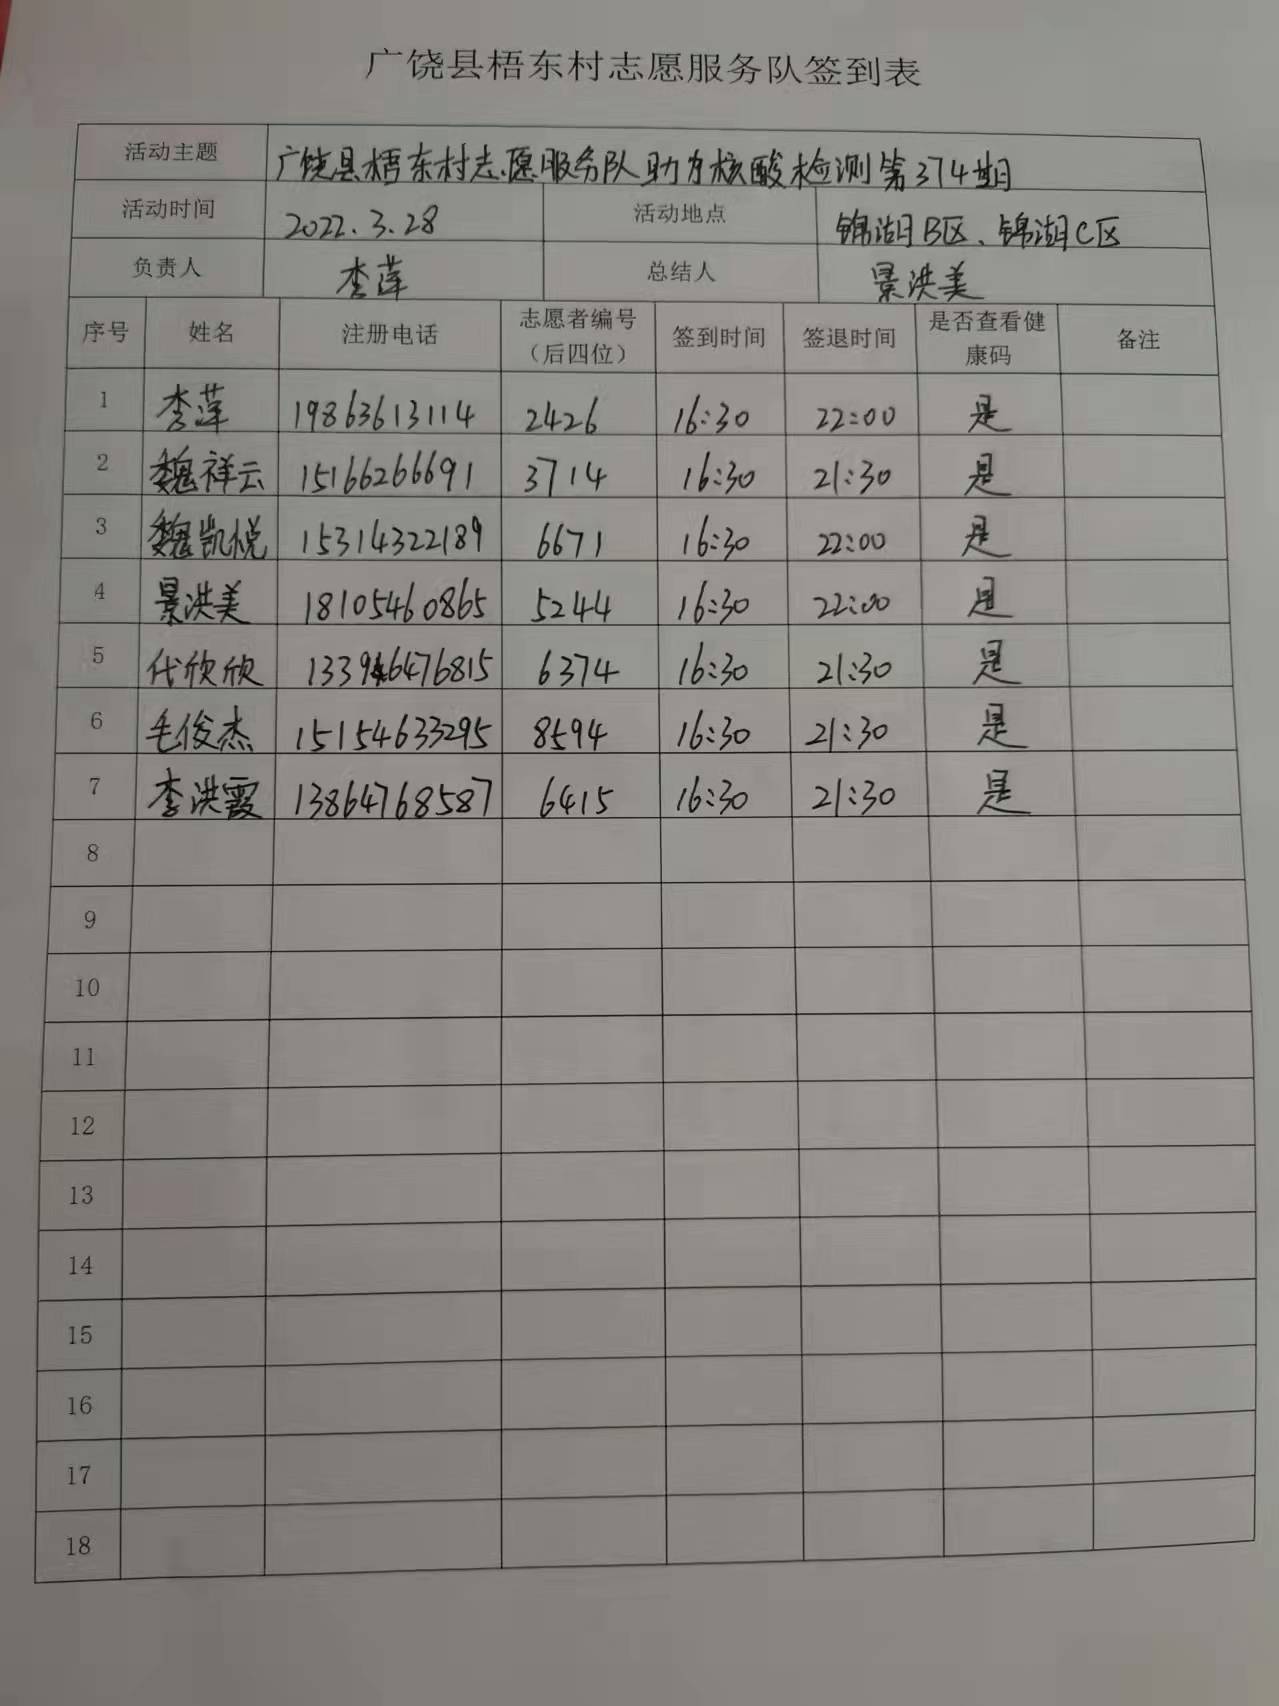 广饶县梧东村志愿服务队签到表
活动主题 广饶县梧东村志愿服务队助力核酸检测第374期
活动时间 2022.3.28 活动地点 锦湖B区、锦湖C区
负责人 李莲 总结人 景洪美
序号 姓名 注册电话 志愿者编号（后四位） 签到时间 签退时间 是否查看健康码 备注
1 李莲 19863613114 2426 16:30 22:00 是
2 魏祥云 15166266691 3714 16:30 21:30 是
3 魏凯悦 15314322189 6671 16:30 22:00 是
4 景洪美 18105460865 5244 16:30 22:00 是
5 代欣欣 6374 16:30 21:30 是
6 毛俊杰 15154633295 8594 16:30 21:30 是
7 李洪霞 13864768587 6415 16:30 21:30 是
8
9
10
11
12
13
14
15
16
17
18